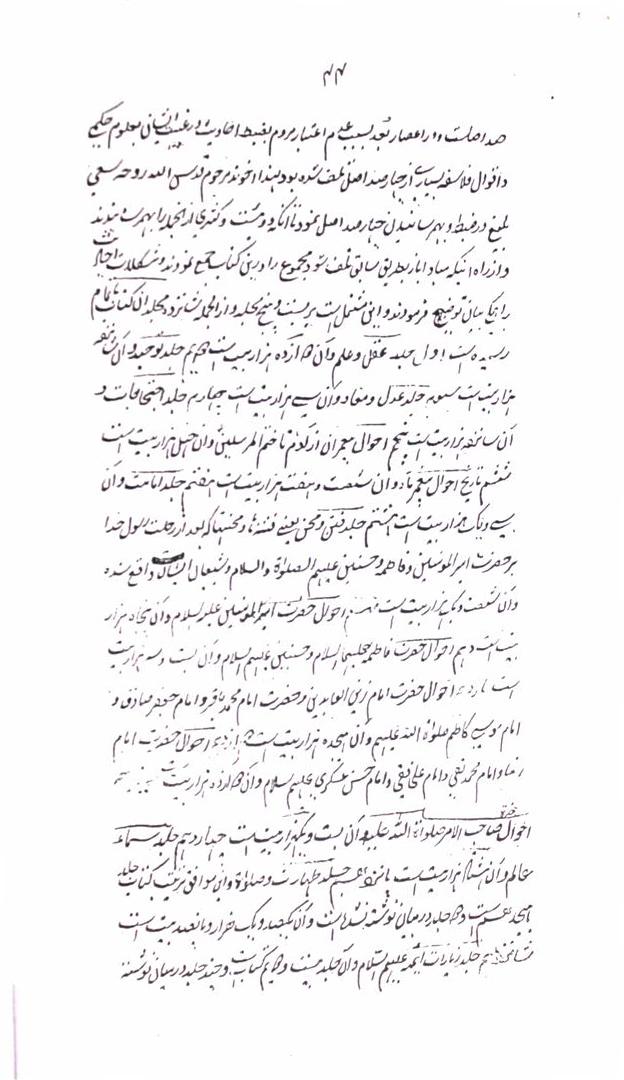 ۴۴
صد اصلست و در اعصار بعد بسبب عدم اعتبار مردم بضبط احادیث و رغبت ایشان بعلوم حکمی
و اقوال فلاسفه بسیاری از چهارصد اصل تلف شده بود لهذا آخوند مرحوم قدس الله روحه سعی
بلیغ در ضبط و بهم رسانیدن چهارصد اصل نمودند تا آنکه دویست و کثری از آنجمله را بهم رسانیدند
و از راه اینکه مبادا باز بطریق سابق تلف شود مجموع را درین کتاب جمع نمودند و مشکلات احادیث
را بیک بیان توضیح فرمودند و این مشتمل است بر بیست و پنج مجلد و از آنجمله شانزده مجلد آن کتاب باتمام
رسیده است اول جلد عقل و علم و آن دوازده هزار بیت است دویم جلد توحید و آن شانزده
هزار بیت است سیم جلد عدل و معاد و آن سی هزار بیت است چهارم جلد احتجاجات و
آن شانزده هزار بیت است پنجم احوال پیغمبران از آدم تا ختم المرسلین و آن چهل هزار بیت است
ششم تاریخ احوال پیغمبر ما و آن شصت و هفت هزار بیت است هفتم جلد امامت و آن
سی و یک هزار بیت است هشتم جلد فتن و محن یعنی فتنه ها و محنتها که بعد از رحلت رسول خدا
بر حضرت امیر المؤمنین و فاطمه و حسنین علیهم الصلواة والسلام و شیعیان ایشان واقع شده
و آن شصت و یک هزار بیت است نهم احوال حضرت امیر المؤمنین علیه السلام و آن پنجاه هزار
بیت است دهم احوال حضرت فاطمه علیها السلام و حسنین علیهم السلام و آن بیست و سه هزار بیت
است یازدهم احوال حضرت امام زین العابدین و حضرت امام محمد باقر و امام جعفر صادق و
امام موسی کاظم صلواة الله علیهم و آن هیجده هزار بیت است دوازدهم احوال حضرت امام
رضا و امام محمد تقی و امام علی نقی و امام حسن عسکری علیهم السلام و آن دوازده هزار بیت است سیزدهم
احوال حضرت صاحب الامر صلواة الله علیه و آن بیست و یکهزار بیت است چهاردهم جلد سماء
عالم و آن هشتاد هزار بیت است پانزدهم جلد طهارت و صلواة و این موافق ترتیب کتاب جلد
هیجدهم است و دو جلد در میان نوشته نشده است و آن یکصد و یک هزار و پانصد بیت است
شانزدهم جلد زیارات ائمه علیهم السلام و آن جلد بیست و دویم کتابست و چند جلد در میان نوشته